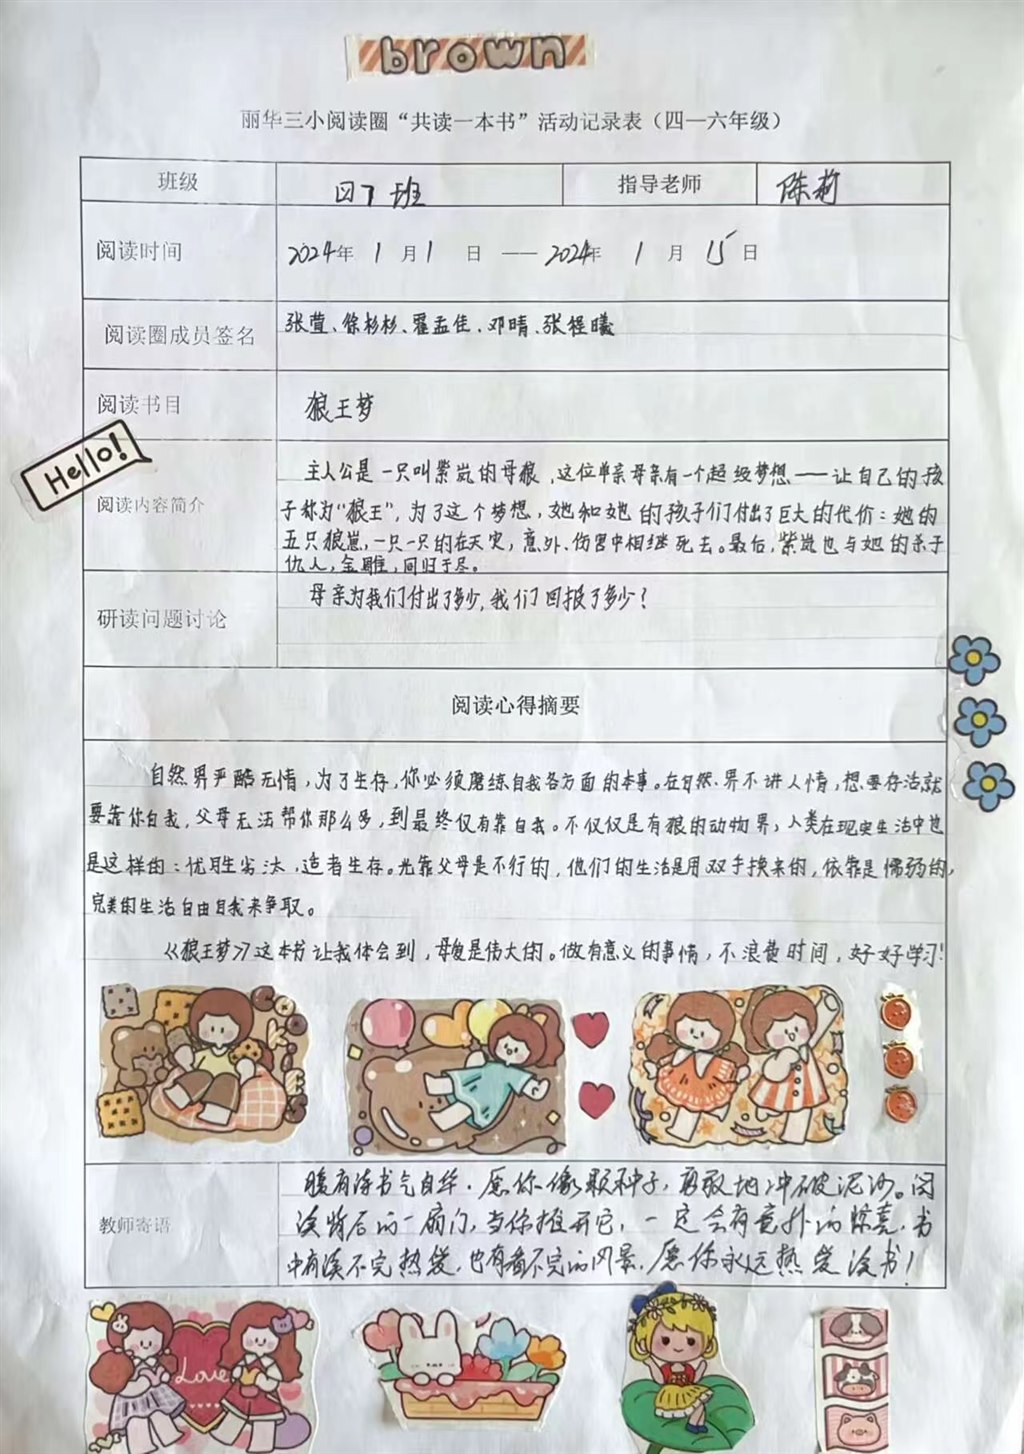 brown
丽华三小阅读圈“共读一本书”活动记录表（四—六年级）
班级 四7班 指导老师 陈莉
阅读时间 2024年 1月1日 —— 2024年 1月 15日
阅读圈成员签名 张萱、徐杉杉、翟孟佳、邓晴、张程曦
阅读书目 狼王梦
Hello!
阅读内容简介
主人公是一只叫紫岚的母狼，这位单亲母亲有一个超级梦想——让自己的孩
子称为“狼王”，为了这个梦想，她和她的孩子们付出了巨大的代价：她的
五只狼崽，一只一只的在天灾，意外、伤害中相继死去。最后，紫岚也与她的杀子
仇人，金雕，同归于尽。
研读问题讨论 母亲为我们付出了多少，我们回报了多少？
阅读心得摘要
自然界严酷无情，为了生存，你必须磨练自我各方面的本事。在自然界不讲人情，想要存活就
要靠你自我，父母无法帮你那么多，到最终仅有靠自我。不仅仅是有狼的动物界，人类在现实生活中也
是这样的：优胜劣汰，适者生存。光靠父母是不行的，他们的生活是用双手换来的，依靠是懦弱的，
完美的生活自由自我来争取。
《狼王梦》这本书让我体会到，母爱是伟大的。做有意义的事情，不浪费时间，好好学习！
教师寄语
腹有诗书气自华，愿你像颗种子，勇敢地冲破泥沙。阅
读背后的一扇门，当你推开它，一定会有意外的惊喜，书
中有读不完热爱，也有看不完的风景，愿你永远热爱读书！
Love